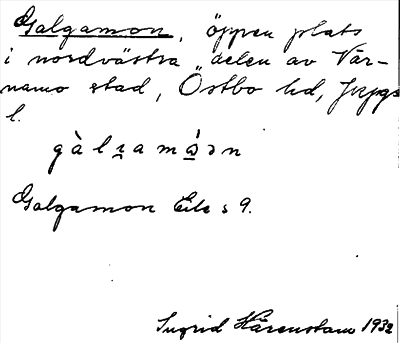 Galgamon, öppen plats
i nordvästra delen av Vär-
namo stad, Östbo hd,
l.
Galgamon Eils 9.
Ingrid Härenstam 1932